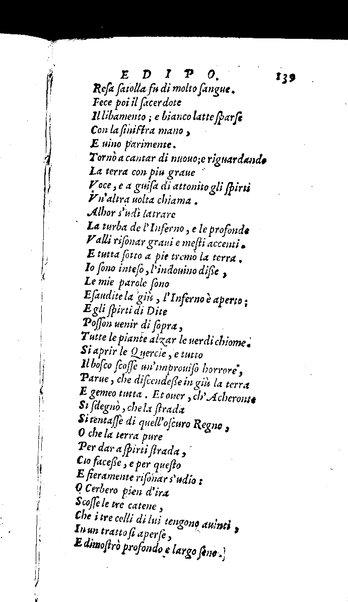 EDIPO. 139
Resa satolla fu di molto sangue.
Fece poi il sacerdote
Il libamento; e bianco latte sparse
Con la sinistra mano,
E uino parimente.
Tornò a cantar di nuouo; e riguardando
La terra con piu graue
Voce, e a guisa di attonito gli spirti
Vn'altra uolta chiama.
Alhor s'udì latrare
La turba de l'Inferno, e le profonde
Valli risonar graui e mesti accenti.
E tutta sotto a pie tremò la terra.
Io sono inteso, l'indouino disse,
Le mie parole sono
Esaudite la giù, l'Inferno è aperto;
E gli spirti di Dite
Posson uenir di sopra,
Tutte le piante alzar le uerdi chiome.
Si aprir le Quercie, e tutto
Il bosco scosse un'improuiso horrore,
Parue, che discendesse in giù la terra
E gemeo tutta. Et ouer, ch'Acheronte
Si sdegnò, che la strada
Si tentasse di quell'oscuro Regno,
O che la terra pure
Per dar a spirti strada,
Cio facesse, e per questo
E fieramente risonar s'udio:
O Cerbero pien d'ira
Scosse le tre catene,
Che i tre colli di lui tengono auinti,
In un tratto si aperse,
E dimostrò profondo e largo seno.